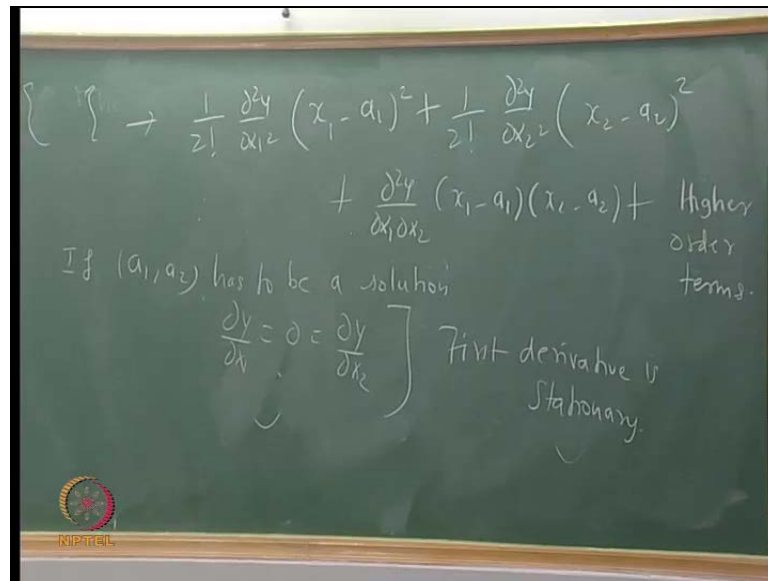 { } → 1/2! ∂²y/∂x₁² (x₁ - a₁)² + 1/2! ∂²y/∂x₂² (x₂ - a₂)²
+ ∂²y/∂x₁∂x₂ (x₁ - a₁)(x₂ - a₂) + Higher order terms.
If (a₁, a₂) has to be a solution
∂y/∂x₁ = 0 = ∂y/∂x₂ ] First derivative is
Stationary.
NPTEL